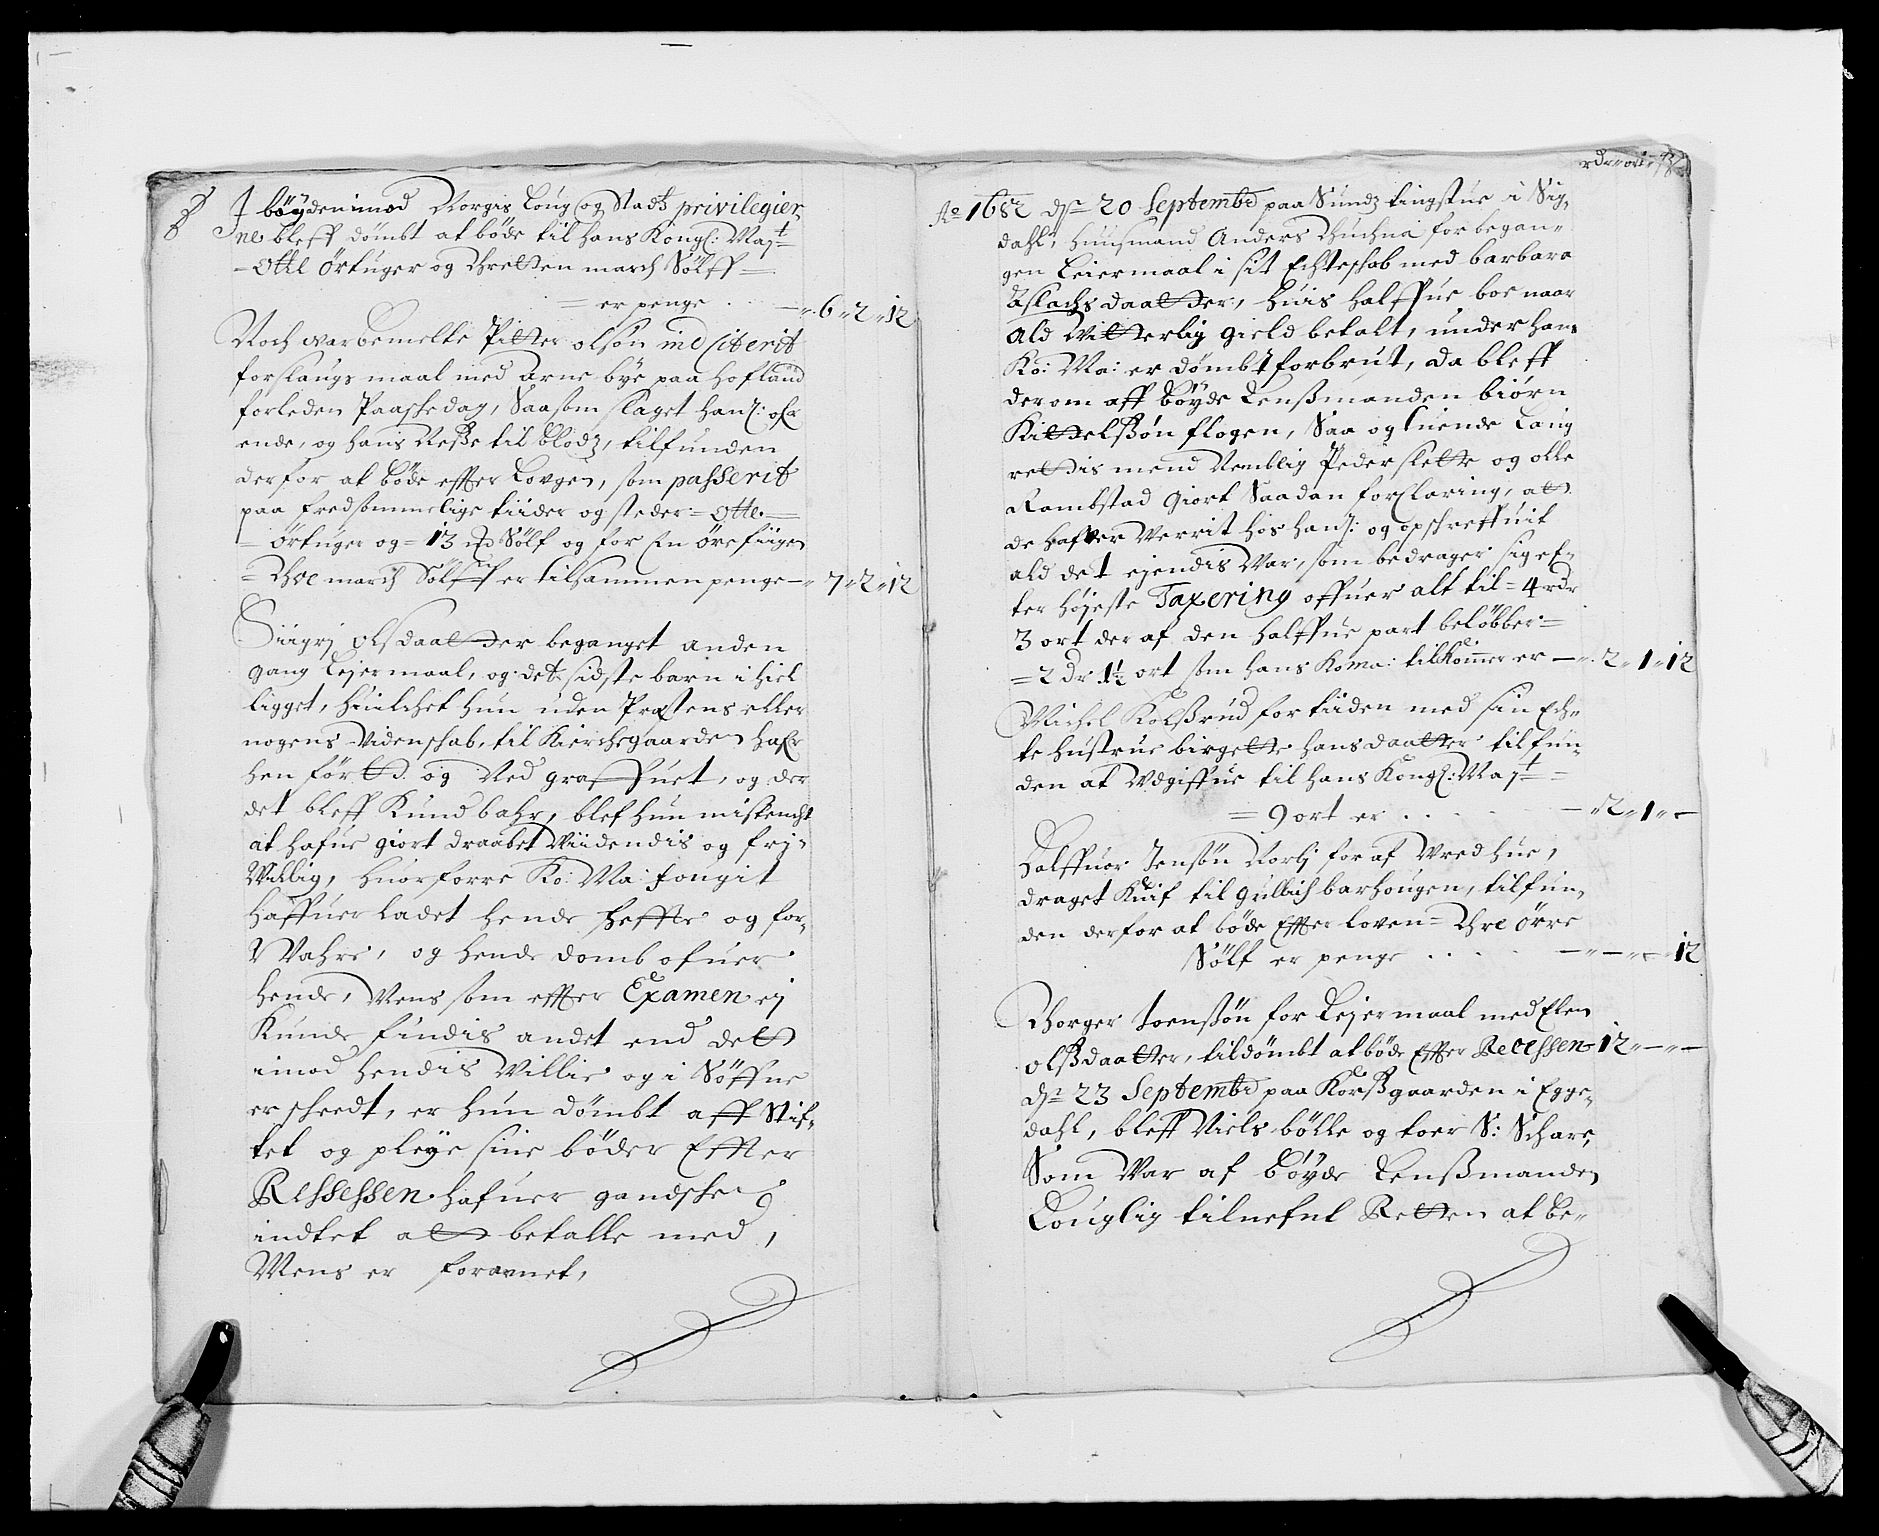 I böyden imod Norgis Loug og Stadz privilegier,
ne bleff dömbt at böde til hans Kongl: Mayt
- Otte Örtuger og Thretten march Sölff =
= er penge . — „ 6 „ 2 „ 12
Noch var bemelte Pitter olsön ind Citerit
for slaugs maal med Arne bye paa Hofland
forleden Paaske dag, Saa som slaget hans:
ende, og hans Nesse til blodz, tilfunden
derfor at böde effter Lovgen, som passerit
paa fredsommelige tiider og steder = Otte =
= Örtuger og = 13 Sölf og for En öre fiigen
= Thre march Sölff er tilsammen penge — „ 7 „ 2 „ 12
Siigrj olsdaatter beganget anden
gang Lejermaal, og det sidste barn i hiel
ligget, huilchet hun uden Præstens eller
nogens Videnskab, til Kierchegaarden hafr
hen fört og Ned graffuet, og der
det bleff Kundbahr, blef hun mistencht
at hafue giort draabet Viidendis og frj-
Villig, huorforre Ko: Ma: fougit
haffuer ladet hende heffte og for-
Vahre, og hende domb ofuer
hende, Mens som effter Examen ej
Kunde findis andet end det
imod hendis Villie og i Söffne
er skeedt, er hun dömbt aff Stif-
tet og pleye sine böder Effter
Ressessen hafuer gandske
indtet at betalle med,
Mens er forarmet,
rdr ort ß
Ao 1682 dn 20 Septembr paa Sundz tingstue i Sig-
dahl, huusmand Anders Buchna for began-
gen Leiermaal i sit Echteskab med barbara
Aslachsdaatter, huis halffue boe naar
Ald Vitterlig gield betalt, under hans
Ko: Ma: er dömbt forbrut, da bleff
derom aff böyde Lensßmanden biörn
Kittelßön flogen, Saa og tuende Laug
rettis mend Nemblig Peder slette og olle
Rambstad giort Saadan forClaring, at
de hafver Verrit hos hans: og opskreffuit
ald det ejendis Var, som bedrager sig ef-
ter höjeste Taxering offuer alt til = 4 rdr
3 ort der af den halffue part belöbber =
= 2 dr 1½ ort som hans Ko ma: tilKommer er — „ 2 „ 1 „ 12
Michel Kolßrud for tiiden med sin Ech-
te hustrue birgette hansdaatter tilfun-
den at Udgiffue til hans Kongl: Mayt =
= 9 ort er . . . . — „ 2 „ 1 „ —
Halffuor Jensön Norlj for af Vred hue,
draget Knif til gullich barhougen, tilfun-
den derfor at böde Effter loven = Thre örre
Sölf er penge . . . . — „ — „ — „ 12
Thorger toensßön for Lejermaal med Elen
olßdaatter, tildömbt at böde Effter Recessen 12 „ — „ —
dn 23 Septembr paa Korßgaarden i Egge-
dahl, bleff Niels bölle og toer S: Schare,
Som Var af böyde Lensßmanden
Louglig tilnefnt Retten at be-